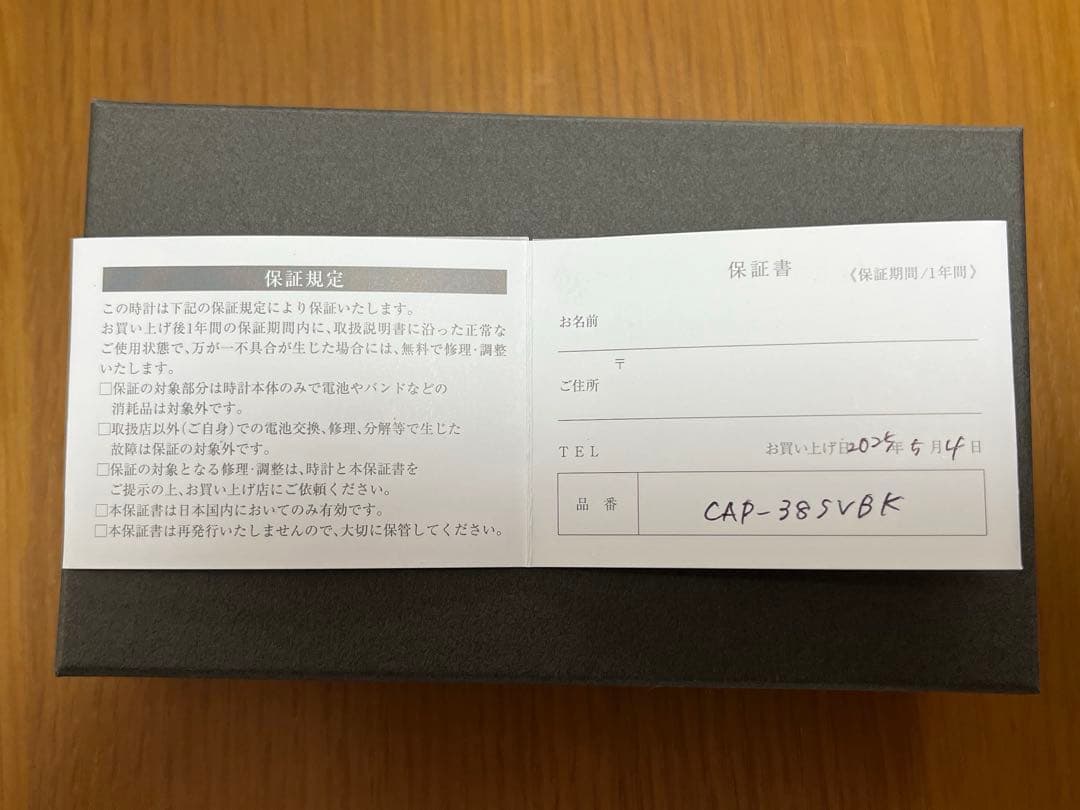 保証規定
この時計は下記の保証規定により保証いたします。
お買い上げ後1年間の保証期間内に、取扱説明書に沿った正常な
ご使用状態で、万が一不具合が生じた場合には、無料で修理・調整
いたします。
□保証の対象部分は時計本体のみで電池やバンドなどの
消耗品は対象外です。
□取扱店以外(ご自身)での電池交換、修理、分解等で生じた
故障は保証の対象外です。
□保証の対象となる修理・調整は、時計と本保証書を
ご提示の上、お買い上げ店にご依頼ください。
□本保証書は日本国内においてのみ有効です。
□本保証書は再発行いたしませんので、大切に保管してください。
保証書 《保証期間/1年間》
お名前
〒
ご住所
TEL お買い上げ日2025年5月4日
品番 CAP-38SVBK